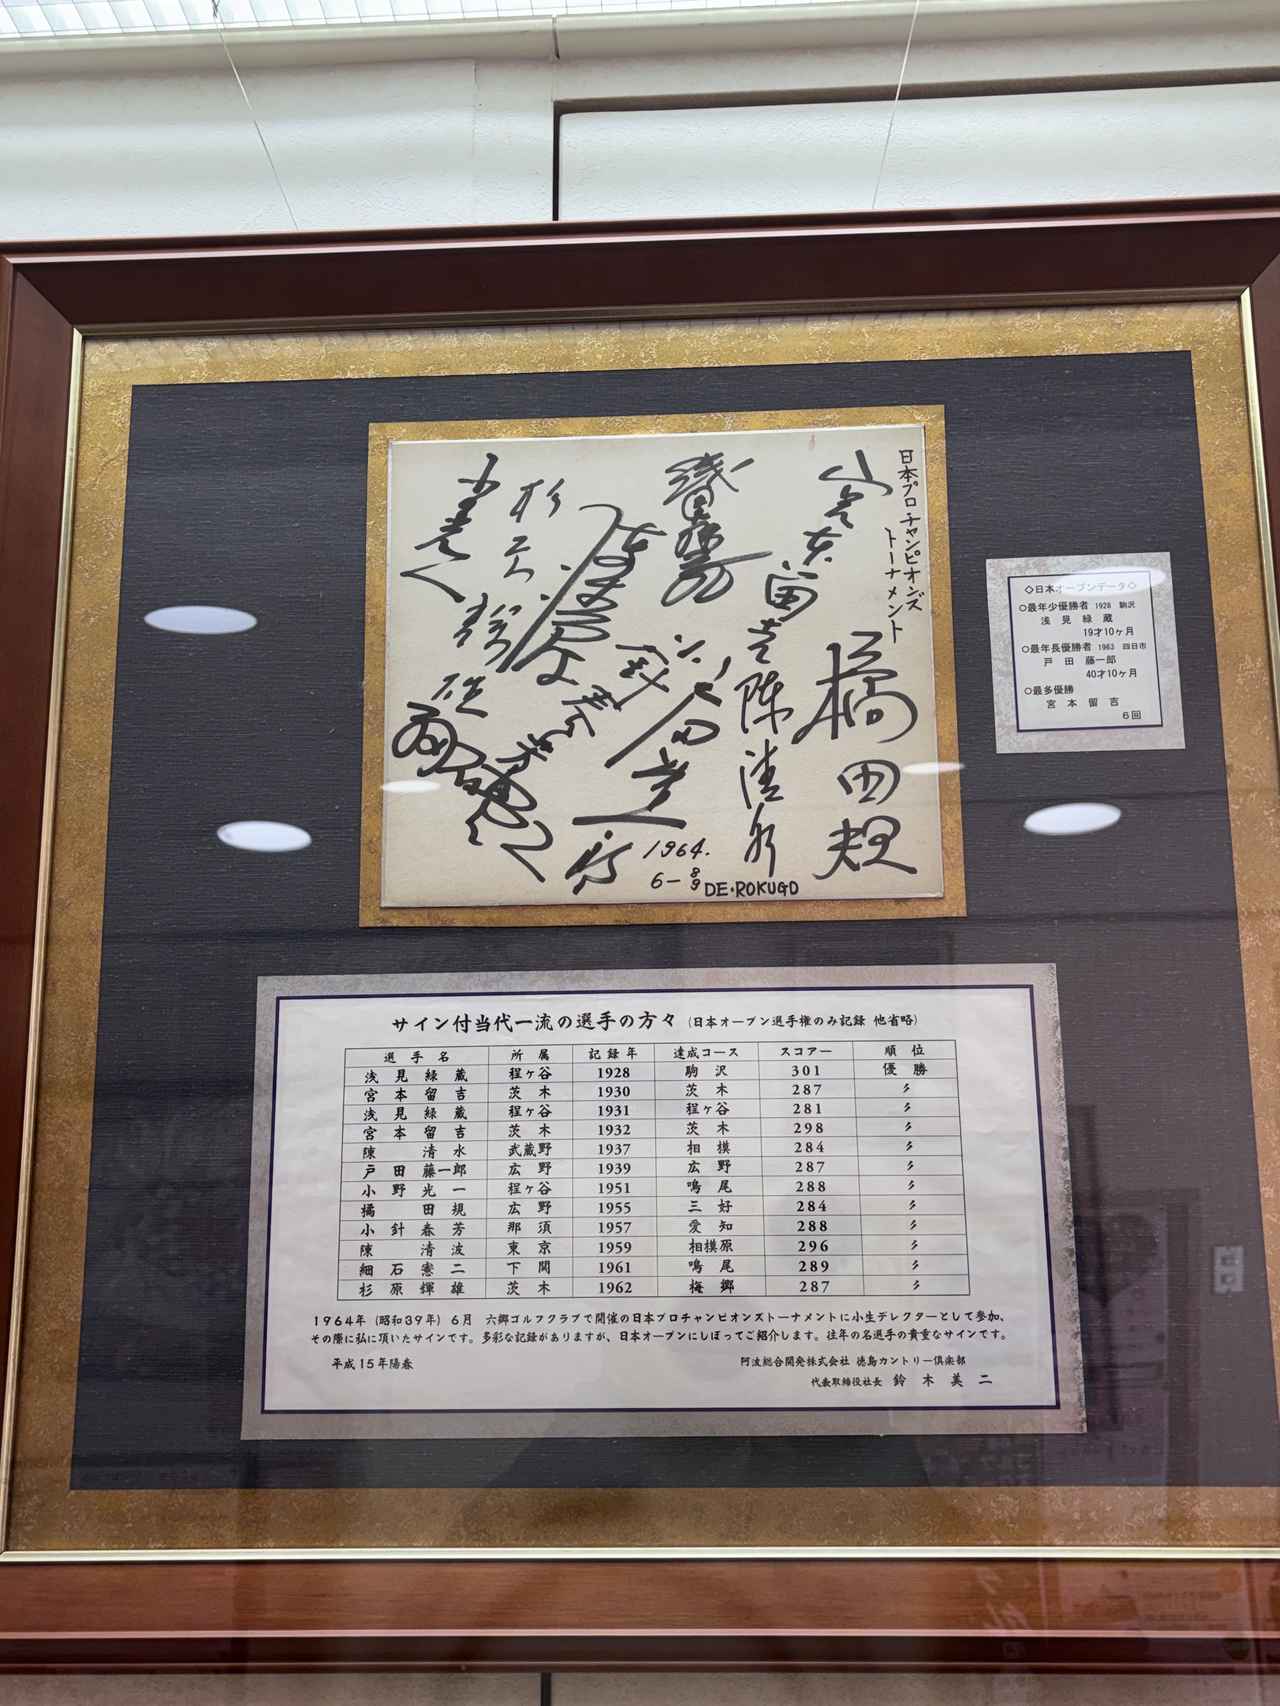 日本プロチャンピオンズ
トーナメント
橘田規
陳清水
宮本留吉
1964.
6-8
9
DE・ROKUGO
◇日本オープンデータ◇
○最年少優勝者 1928 駒沢
浅見緑蔵
19才10ヶ月
○最年長優勝者 1963 四日市
戸田藤一郎
40才10ヶ月
○最多優勝
宮本留吉
6回
サイン付当代一流の選手の方々 (日本オープン選手権のみ記録 他省略)
選手名 所属 記録年 達成コース スコアー 順位
浅見緑蔵 程ヶ谷 1928 駒沢 301 優勝
宮本留吉 茨木 1930 茨木 287 〃
浅見緑蔵 程ヶ谷 1931 程ヶ谷 281 〃
宮本留吉 茨木 1932 茨木 298 〃
陳清水 武蔵野 1937 相模 284 〃
戸田藤一郎 広野 1939 広野 287 〃
小野光一 程ヶ谷 1951 鳴尾 288 〃
橘田規 広野 1955 三好 284 〃
小針春芳 那須 1957 愛知 288 〃
陳清波 東京 1959 相模原 296 〃
細石憲二 下関 1961 鳴尾 289 〃
杉原輝雄 茨木 1962 梅郷 287 〃
1964年(昭和39年)6月 六郷ゴルフクラブで開催の日本プロチャンピオンズトーナメントに小生デレクターとして参加、
その際に私に頂いたサインです。多彩な記録がありますが、日本オープンにしぼってご紹介します。往年の名選手の貴重なサインです。
平成15年陽春
阿波総合開発株式会社 徳島カントリー倶楽部
代表取締役社長 鈴木美二